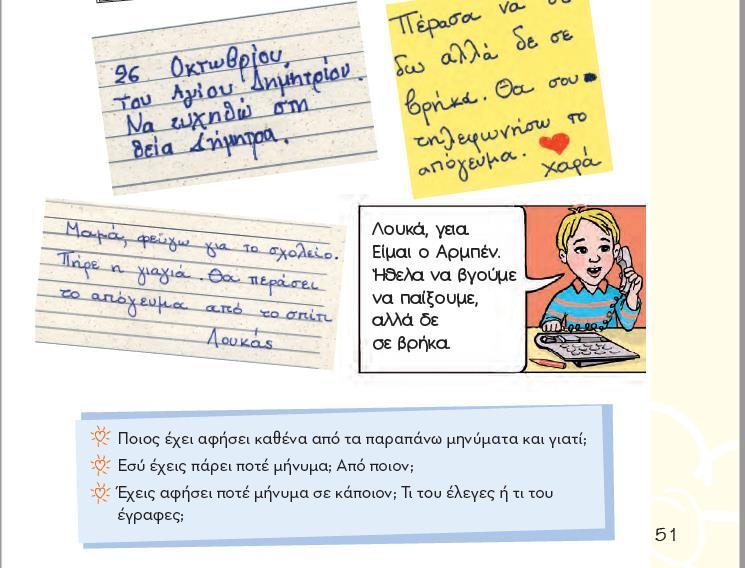 26 Οκτωβρίου,
του Αγίου Δημητρίου.
Να ευχηθώ στη
θεία Δήμητρα.
Πέρασα να σε
δω αλλά δε σε
βρήκα. Θα σου
τηλεφωνήσω το
απόγευμα.
χαρά
Μαμά, φεύγω για το σχολείο.
Πήρε η γιαγιά. Θα περάσει
το απόγευμα από το σπίτι
Λουκάς
Λουκά, γεια
Είμαι ο Αρμπέν.
Ήθελα να βγούμε
να παίξουμε,
αλλά δε
σε βρήκα
Ποιος έχει αφήσει καθένα από τα παραπάνω μηνύματα και γιατί;
Εσύ έχεις πάρει ποτέ μήνυμα; Από ποιον;
Έχεις αφήσει ποτέ μήνυμα σε κάποιον; Τι του έλεγες ή τι του
έγραφες;
51